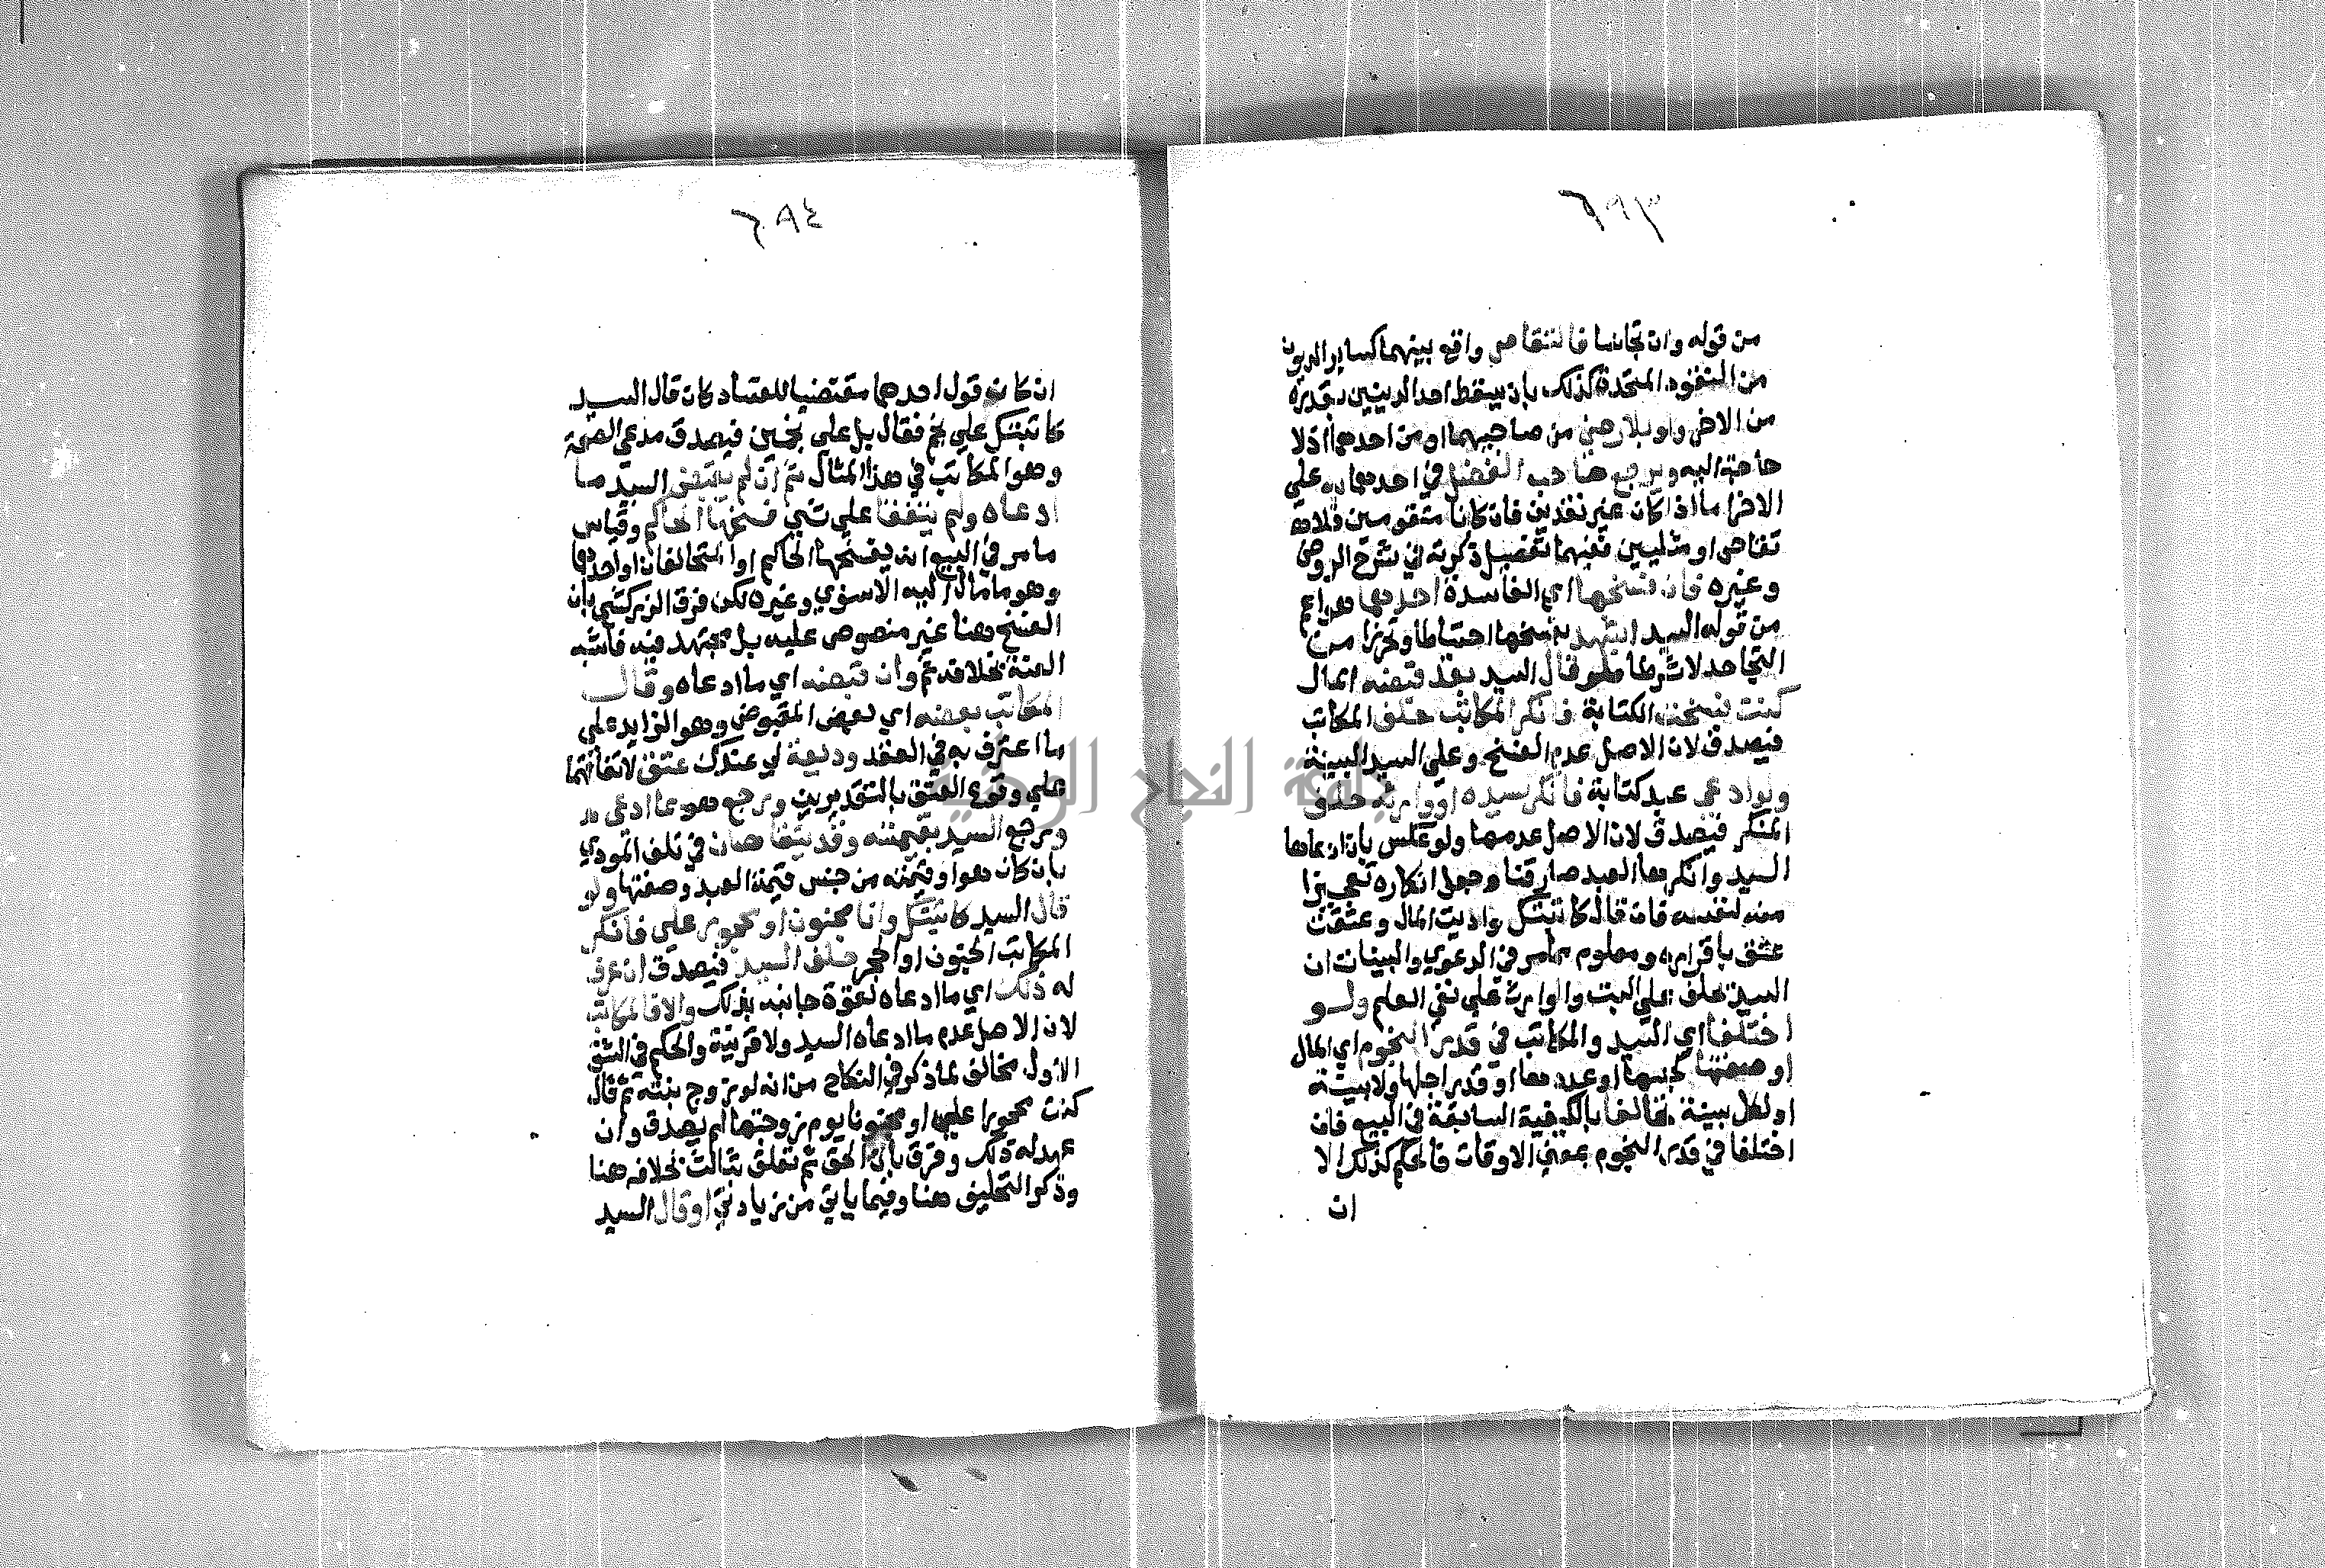 ٦٩٣
من قوله وان تجانسا فالتقاص واقع بينهما كساير الديون
من النقود المتحدة كذلك بان يسقط احد الدينين بقدره
من الاخر ولو بلا رضي من صاحبهما او من احدهما اذ لا
حاجة اليه ويرجع صاحب الفضل في احدهما به على
الاخر اما اذا كان غير نقدين فان كانا متقومين فلا
تقاص او مثليين ففيهما تفصيل ذكرته في شرح الروض
وغيره فان فسخها اي الفاسدة احدهما هو اعم
من قوله السيد اشهد بفسخها احتياطا وتحرزا من
التجاحد لا شرطا فلو قال السيد بعد قبضه المال
كنت فسخت الكتابة فانكر المكاتب حلف المكاتب
فيصدق لان الاصل عدم الفسخ وعلى السيد البينة
ولو ادعى عبد كتابة فانكر سيده او وارثه حلف
المنكر فيصدق لان الاصل عدمها ولو عكس بان ادعاها
السيد وانكرها العبد صار قنا وجعل انكاره تعجيزا
منه لنفسه فان قال كاتبتك واديت المال وعتقت
عتق باقراره ومعلوم مما مر في الدعوي والبينات ان
السيد يحلف على البت والوارث على نفي العلم ولو
اختلفا اي السيد والمكاتب في قدر النجوم اي المال
او صفتها كجنسها او عددها او قدر اجلها ولا بينة
او لكل بينة تحالفا بالكيفية السابقة في البيع فان
اختلفا في قدر النجوم بمعني الاوقات فالحكم كذلك الا
ان
٦٩٤
ان كان قول احدهما مقتضيا للفساد كان قال السيد
كاتبتك علي نجم فقال بل علي نجمين فيصدق مدعي الصحة
وهو المكاتب في هذا المثال ثم ان لم يقبض السيد ما
ادعاه ولم يتفقا على شي فسخها الحاكم وقياس
ما مر في البيع انه يفسخها الحاكم او المتحالفان او احدهما
وهو ما مال اليه الاسنوي وغيره لكن فرق الزركشي بان
الفسخ هنا غير منصوص عليه بل مجتهد فيه فاشبه
العنة بخلافه ثم وان قبضه اي ما ادعاه وقال
المكاتب بعضه اي بعض المقبوض وهو الزايد على
ما اعترف به في العقد وديعة لي عندك عتق لاتفاقهما
على وقوع العتق بالتقديرين ورجع هو بما ادعى
ورجع السيد بقيمته وقد يتقاصان في تلف المودي
بان كان هو او قيمته من جنس قيمة العبد وصفتها ولو
قال السيد كاتبتك وانا مجنون او محجور علي فانكر
المكاتب الجنون او الحجر حلف السيد فيصدق ان عرف
له ذلك اي ما ادعاه لقوة جانبه بذلك والا فالمكاتب
لان الاصل عدم ما ادعاه السيد ولا قرينة والحكم في الشق
الاول مخالف لما ذكر في النكاح من انه لو زوج بنته ثم قال
كنت محجورا علي او مجنونا يوم زوجتها لم يصدق وان
عهد له ذلك وفرق بان الحق ثم تعلق بثالث بخلافه هنا
وذكر التحليف هنا وفيما ياتي من زيادتي او قال السيد
جامعة النجاح الوطنية